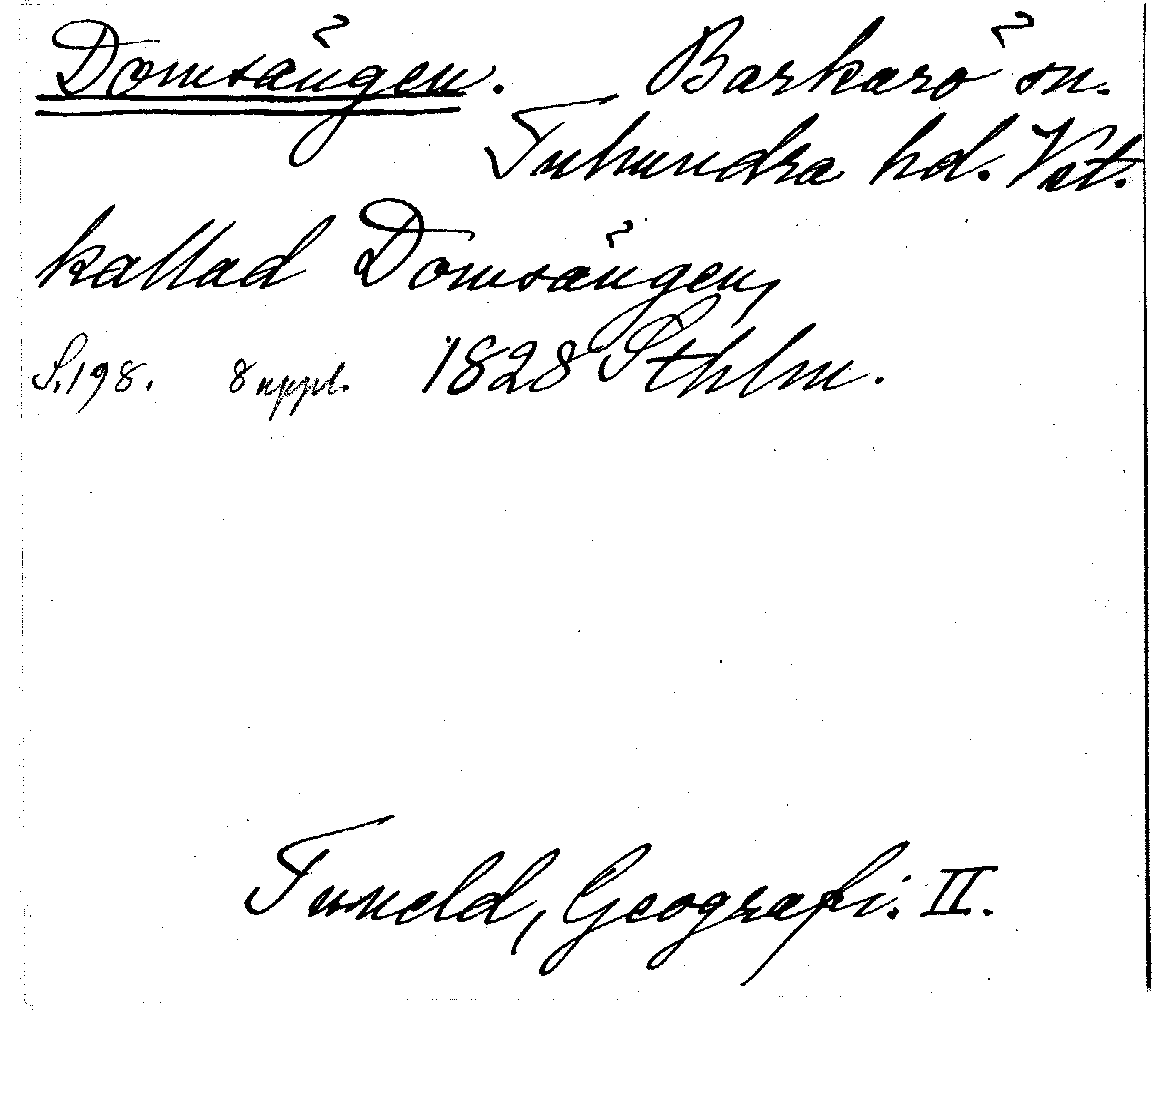 Domsängen. Barkarö sn.
Tuhundra hd. Vstl.
kallad Domsängen,
S.198. 8 uppl. 1828 Sthlm.
Tuneld, Geografi. II.